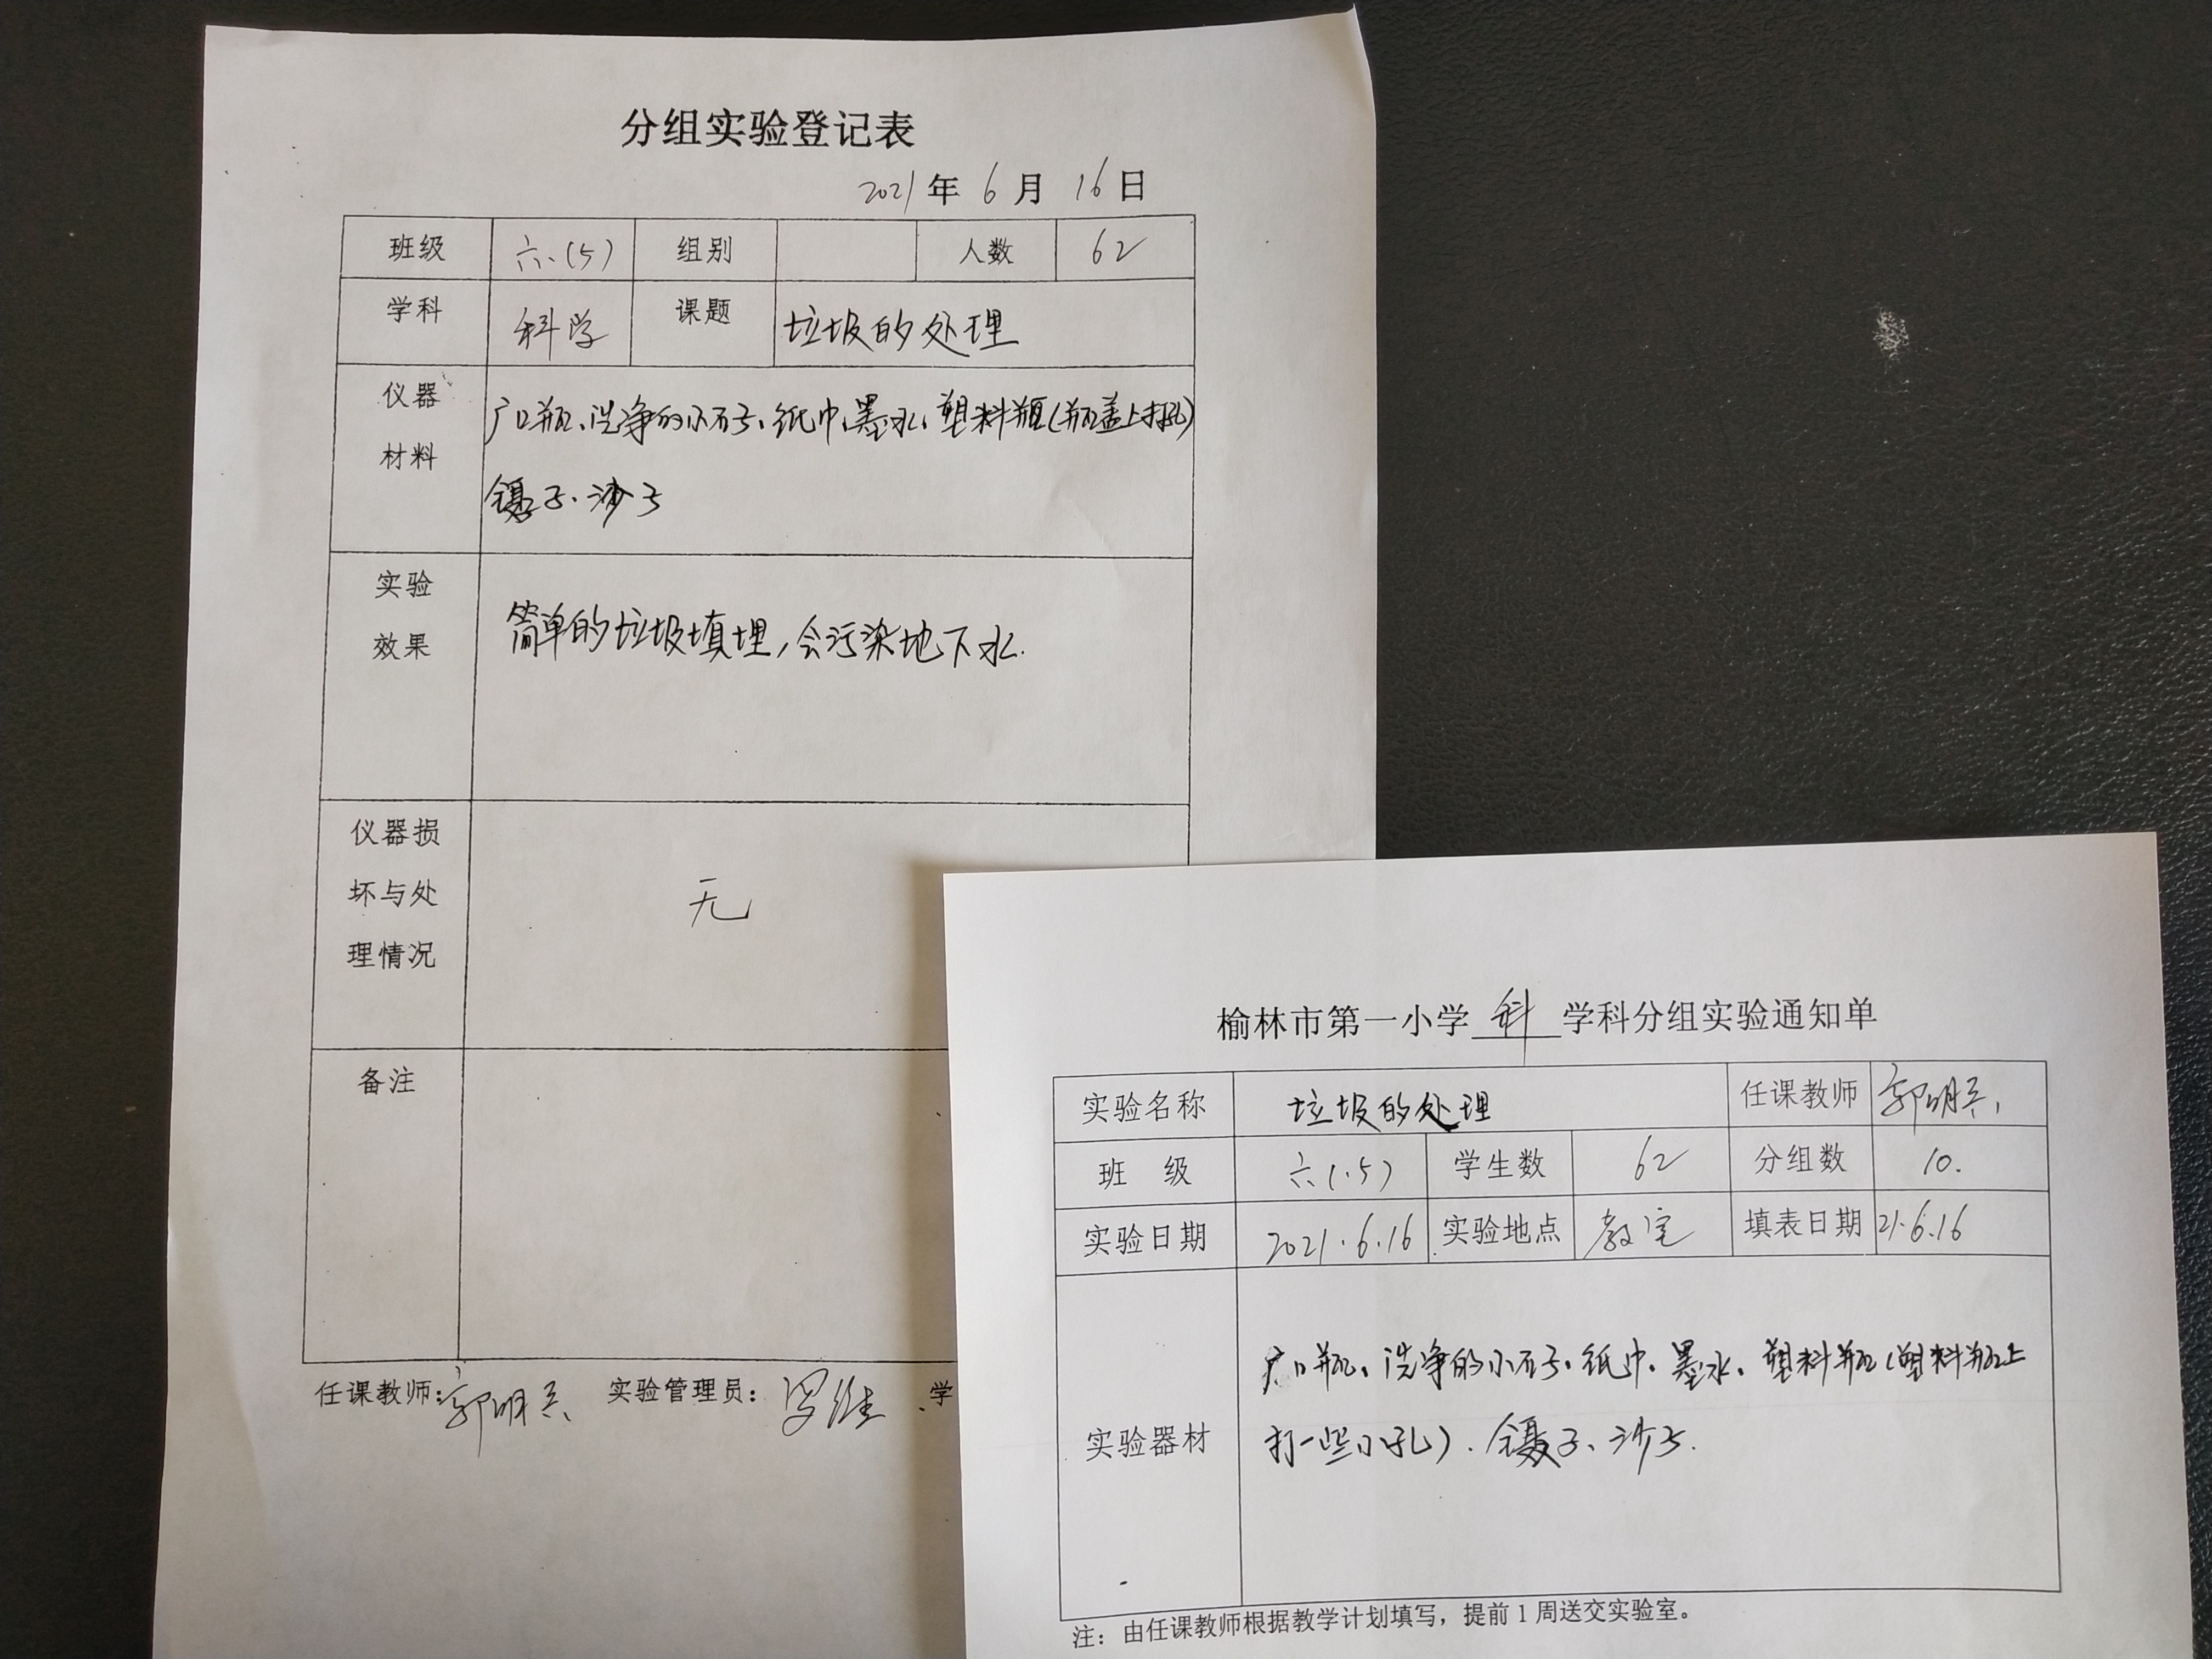 分组实验登记表
2021年6月16日
班级 六.(5) 组别 人数 62
学科 科学 课题 垃圾的处理
仪器材料 广口瓶、洗净的小石子、纸巾、墨水、塑料瓶(瓶盖上打孔)
镊子、沙子
实验效果 简单的垃圾填埋,会污染地下水.
仪器损坏与处理情况 无
备注
任课教师:郭明 实验管理员: 学
榆林市第一小学 科 学科分组实验通知单
实验名称 垃圾的处理 任课教师 郭明
班 级 六(.5) 学生数 62 分组数 10.
实验日期 2021.6.16 实验地点 教室 填表日期 21.6.16
实验器材 广口瓶、洗净的小石子、纸巾、墨水、塑料瓶(塑料瓶上
打一些小孔)、镊子、沙子.
注:由任课教师根据教学计划填写,提前1周送交实验室。